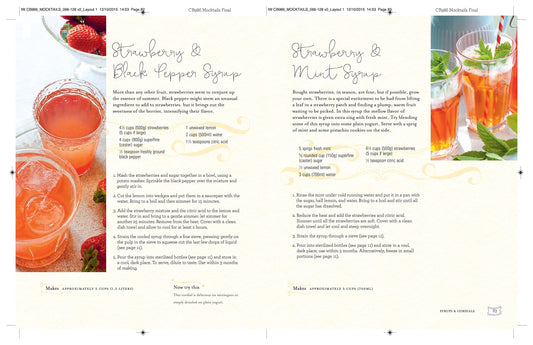 IW CB986_MOCKTAILS_068-128 v2_Layout 1 12/10/2015 14:03 Page
CB986 Mocktails Final
Strawberry &
Black Pepper Syrup
More than any other fruit, strawberries seem to conjure up
the essence of summer. Black pepper might seem an unusual
ingredient to add to strawberries, but it brings out the
sweetness of the berries, intensifying their flavor.
4½ cups (500g) strawberries
(5 cups if large)
superfine
(caster) sugar
½ teaspoon freshly ground
black pepper
1 unwaxed lemon
2 cups (500ml) water
1½ teaspoons citric acid
1. Mash the strawberries and sugar together in a bowl, using a
potato masher. Sprinkle the black pepper over the mixture and
gently stir in.
2. Cut the lemon into wedges and put them in a saucepan with the
water. Bring to a boil and then simmer for 15 minutes.
3. Add the strawberry mixture and the citric acid to the lemon and
water. Stir in and bring to a gentle simmer; let simmer for
another 25 minutes. Remove from the heat. Cover with a clean
dish towel and allow to cool for at least 2 hours.
4. Strain the cooled syrup through a fine sieve, pressing gently on
the pulp in the sieve to squeeze out the last few drops of liquid
(see page 11).
5. Pour the syrup into sterilized bottles (see page 11) and store in
a cool, dark place. To serve, dilute to taste. Use within 3 months
of making.
Makes APPROXIMATELY 5 CUPS (1.2 LITERS)
Now try this
This cordial is delicious on meringues or
simply drizzled on plain yogurt.
IW CB986_MOCKTAILS_068-128 v2_Layout 1 12/10/2015 14:03 Page
CB986 Mocktails Final
Strawberry &
Mint Syrup
Bought strawberries, in season, are fine; but if possible, grow
your own. There is a special excitement to be had from lifting
a leaf in a strawberry patch and finding a plump, warm fruit
waiting to be picked. In this syrup the mellow flavor of
strawberries is given extra zing with fresh mint. Try blending
some of this syrup into some plain yogurt. Serve with a sprig
of mint and some pistachio cookies on the side.
5 sprigs fresh mint
½ rounded cup (110g) superfine
(caster) sugar
½ unwaxed lemon
3 cups (700ml) water
4½ cups (500g) strawberries
(5 cups if large)
½ teaspoon citric acid
1. Rinse the mint under cold running water and put it in a pan with
the sugar, half lemon, and water. Bring to a boil and stir until all
the sugar has dissolved.
2. Reduce the heat and add the strawberries and citric acid.
Simmer until all the strawberries are soft. Cover with a clean
dish towel and let cool and steep overnight.
3. Strain the syrup through a sieve (see page 11).
4. Pour into sterilized bottles (see page 11) and store in a cool,
dark place; use within 3 months. Alternatively, freeze in small
portions (see page 11).
Makes APPROXIMATELY 3 CUPS (750ML)
SYRUPS & CORDIALS